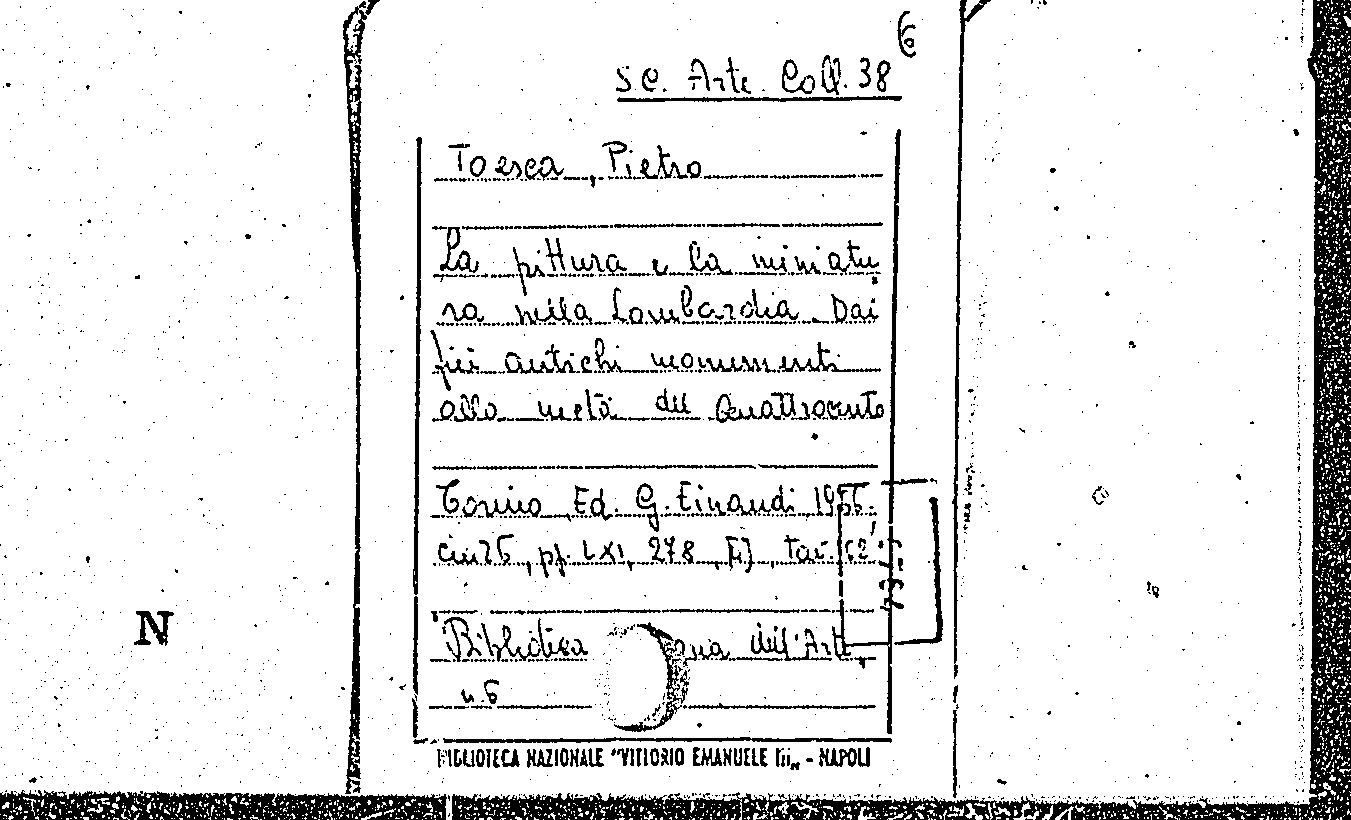 6
S.C. Arte Coll. 38
Toesca, Pietro
La pittura e la miniatu
ra nella Lombardia. Dai
più antichi monumenti
alla metà del Quattrocento
Torino Ed. G. Einaudi 1966.
cm 26, pp. LXI, 278, [4], tav.
Biblioteca dell'Arte,
n. 6
N
BIBLIOTECA NAZIONALE "VITTORIO EMANUELE III" - NAPOLI